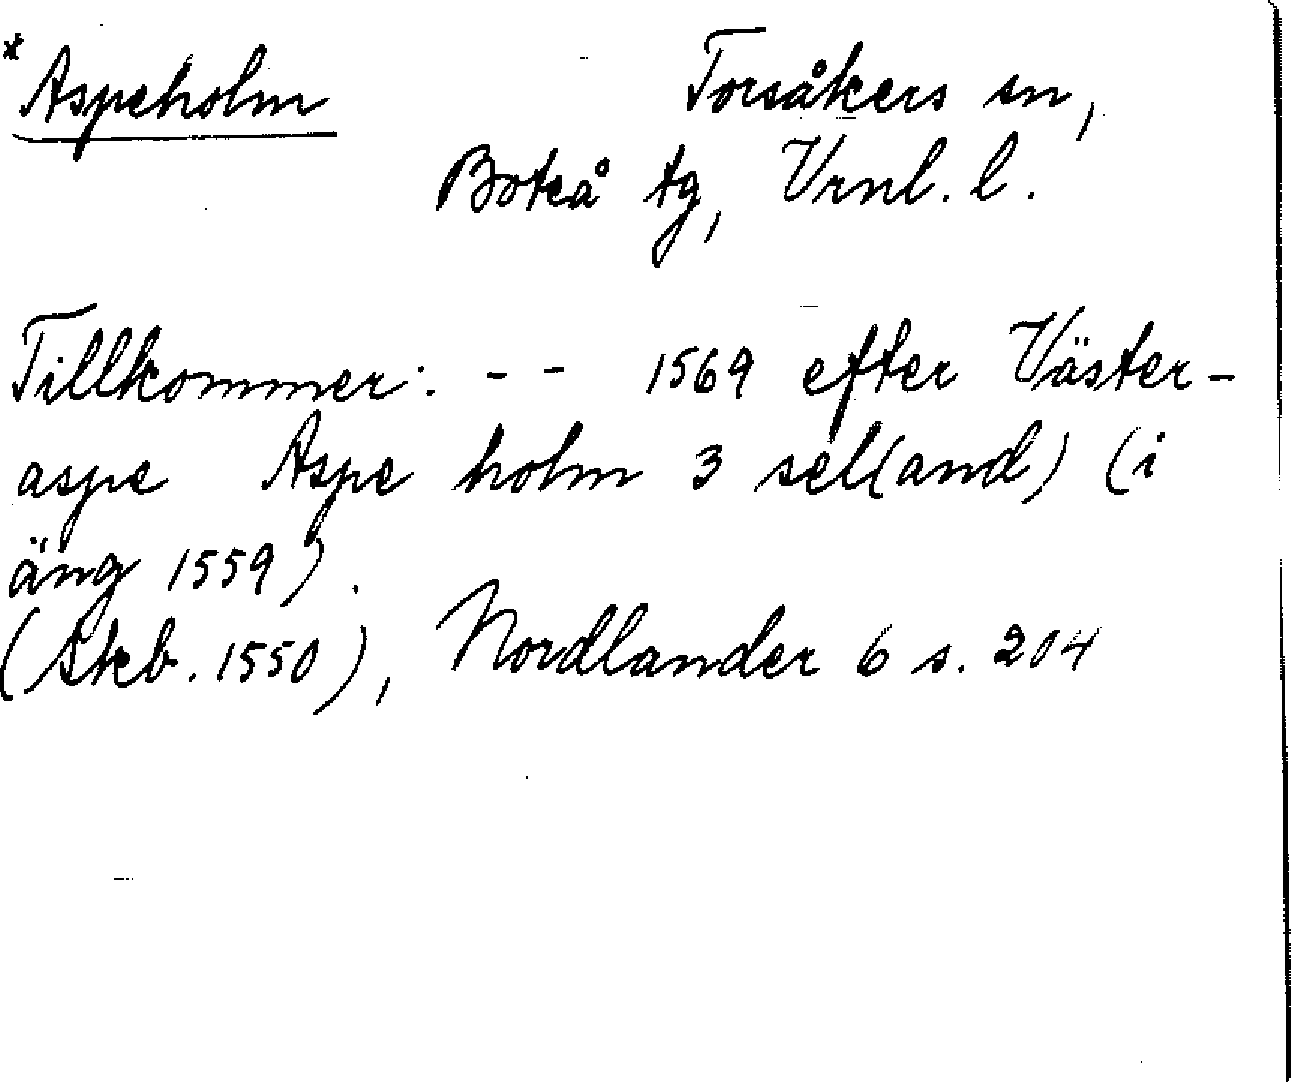 *Aspeholm Torsåkers sn,
Boteå tg, Vrnl. l.
Tillkommer: -- 1569 efter Väster-
aspe Aspe holm 3 sel(and) (i
äng 1559).
(Skb. 1550), Nordlander 6 s. 204